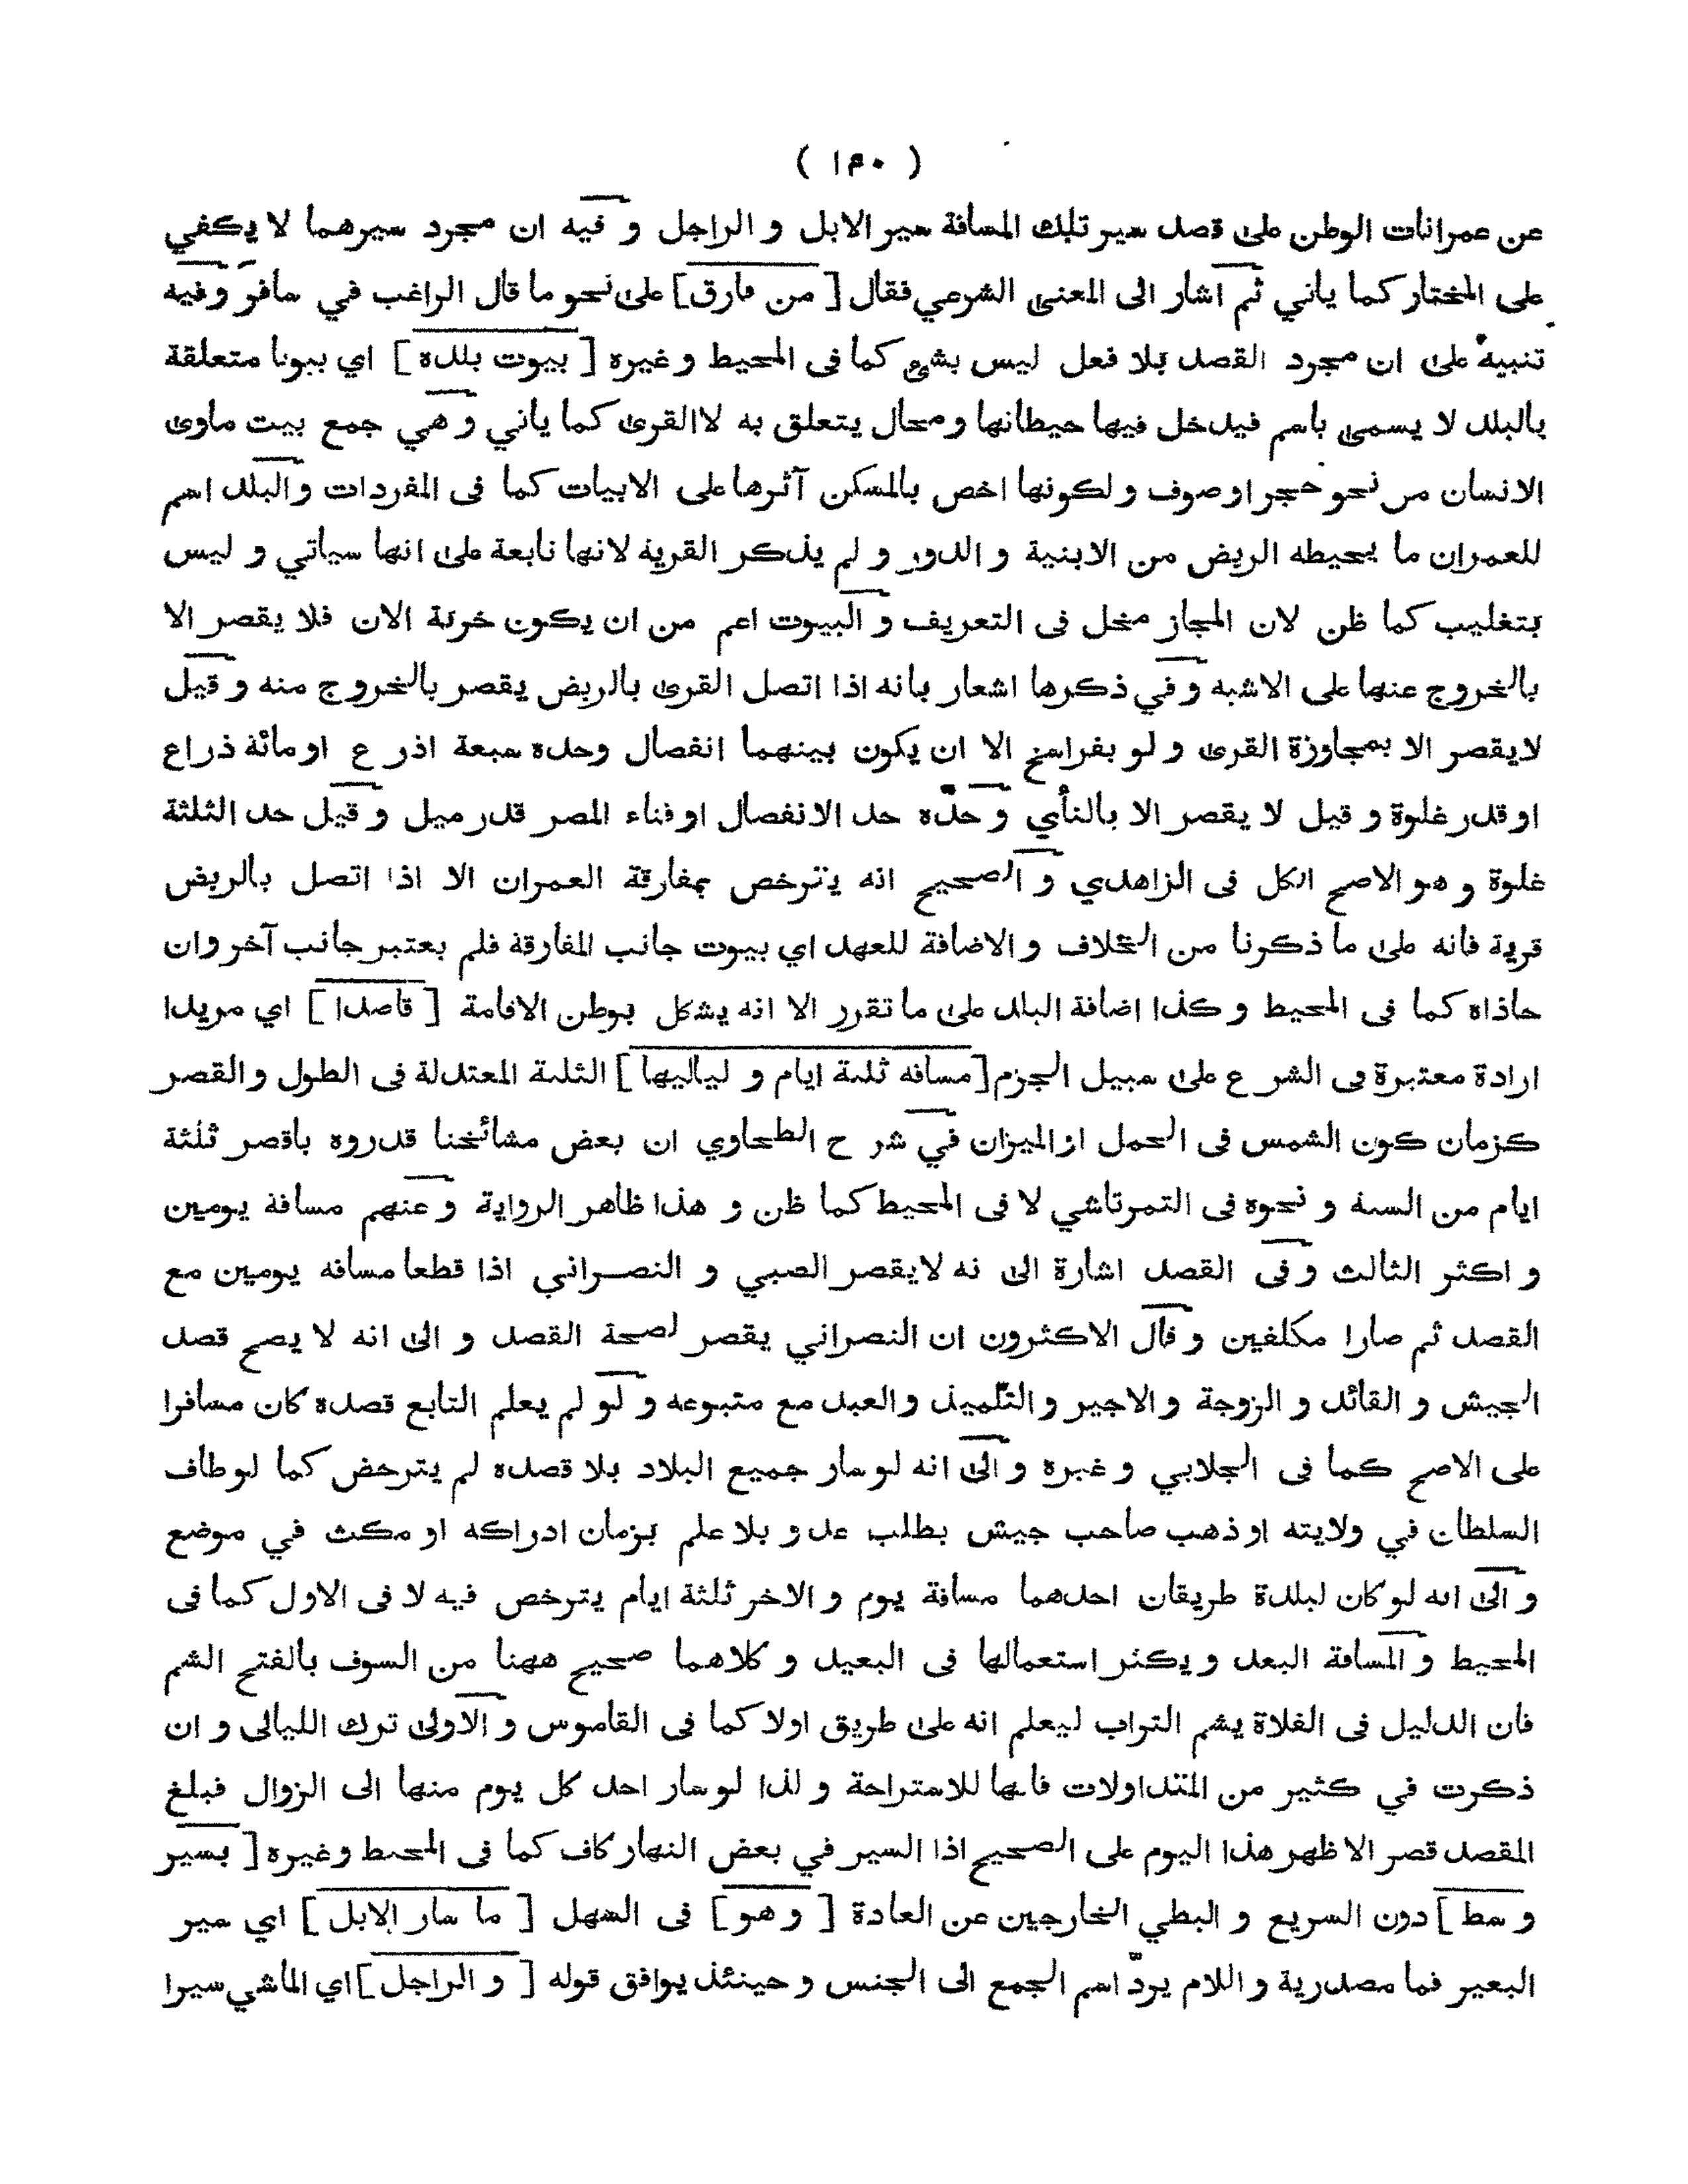 ( ١٥٠ )
عن عمرانات الوطن على قصد سير تلك المسافة سير الابل و الراجل و فيه ان مجرد سيرهما لا يكفي
على المختار كما ياتي ثم اشار الى المعنى الشرعي فقال [ من فارق ] على نحو ما قال الراغب في سافر وفيه
تنبيه على ان مجرد القصد بلا فعل ليس بشئ كما فى المحيط و غيره [ بيوت بلده ] اي بيوتا متعلقة
بالبلد لا يسمى باسم فيدخل فيها حيطانها ومحال يتعلق به لا القرى كما ياتي و هي جمع بيت ماوى
الانسان من نحو حجر او صوف و لكونها اخص بالمسكن آثرها على الابيات كما فى المفردات والبلد اسم
للعمران ما يحيطه الربض من الابنية و الدور و لم يذكر القرية لانها تابعة على انها سياتي و ليس
بتغليب كما ظن لان المجاز مخل فى التعريف و البيوت اعم من ان يكون خربة الان فلا يقصر الا
بالخروج عنها على الاشبه و في ذكرها اشعار بانه اذا اتصل القرى بالربض يقصر بالخروج منه و قيل
لايقصر الا بمجاوزة القرى و لو بفراسخ الا ان يكون بينهما انفصال وحده سبعة اذر ع او مائة ذراع
او قدر غلوة و قيل لا يقصر الا بالنأي و حدّه حد الانفصال او فناء المصر قدر ميل و قيل حد الثلثة
غلوة و هو الاصح الكل فى الزاهدي و الصحيح انه يترخص بمفارقة العمران الا اذا اتصل بالربض
قرية فانه على ما ذكرنا من الخلاف و الاضافة للعهد اي بيوت جانب المفارقة فلم يعتبر جانب آخر وان
حاذاه كما فى المحيط و كذا اضافة البلد على ما تقرر الا انه يشكل بوطن الاقامة [ قاصدا ] اي مريدا
ارادة معتبرة فى الشر ع على سبيل الجزم [ مسافة ثلثة ايام و لياليها ] الثلثة المعتدلة فى الطول والقصر
كزمان كون الشمس فى الحمل او الميزان في شر ح الطحاوي ان بعض مشائخنا قدروه باقصر ثلثة
ايام من السنة و نحوه فى التمرتاشي لا فى المحيط كما ظن و هذا ظاهر الرواية و عنهم مسافة يومين
و اكثر الثالث و فى القصد اشارة الى نه لايقصر الصبي و النصراني اذا قطعا مسافة يومين مع
القصد ثم صارا مكلفين و قال الاكثرون ان النصراني يقصر لصحة القصد و الى انه لا يصح قصد
الجيش و القائد و الزوجة والاجير و التلميذ والعبد مع متبوعه و لو لم يعلم التابع قصده كان مسافرا
على الاصح كما فى الجلابي و غيره و الى انه لو سار جميع البلاد بلا قصده لم يترخص كما لو طاف
السلطان في ولايته او ذهب صاحب جيش بطلب عدو بلا علم بزمان ادراكه او مكث في موضع
و الى انه لو كان لبلدة طريقان احدهما مسافة يوم و الاخر ثلثة ايام يترخص فيه لا فى الاول كما فى
المحيط و المسافة البعد و يكثر استعمالها فى البعيد و كلاهما صحيح ههنا من السوف بالفتح الشم
فان الدليل فى الفلاة يشم التراب ليعلم انه على طريق اولا كما فى القاموس و الاولى ترك الليالى و ان
ذكرت في كثير من المتداولات فانها للاستراحة و لذا لو سار احد كل يوم منها الى الزوال فبلغ
المقصد قصر الاظهر هذا اليوم على الصحيح اذا السير في بعض النهار كاف كما فى المحيط وغيره [ بسير
و سط ] دون السريع و البطي الخارجين عن العادة [ و هو ] فى السهل [ ما سار الابل ] اي سير
البعير فما مصدرية و اللام يردّ اسم الجمع الى الجنس و حينئذ يوافق قوله [ و الراجل ] اي الماشي سيرا